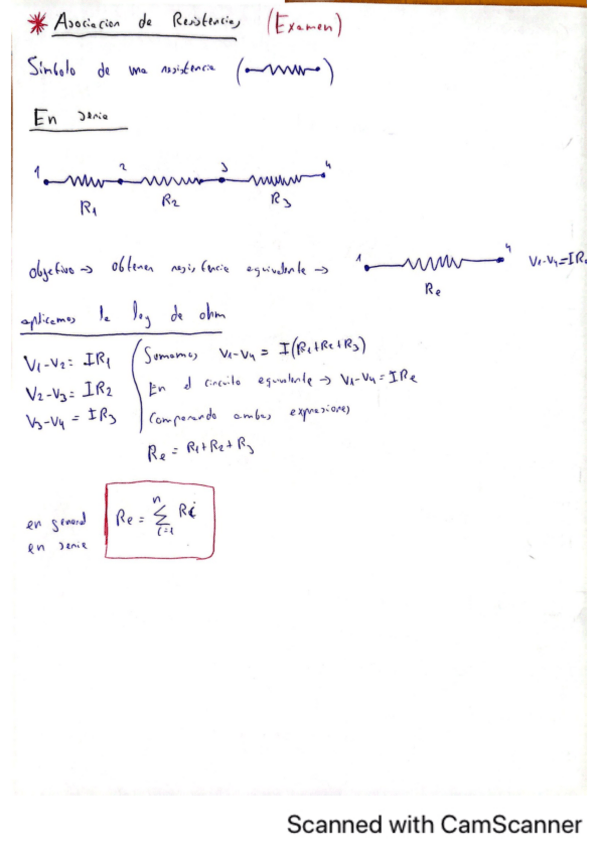 * Asociacion de Resistencias (Examen)
Simbolo de una resistencia ( )
En serie
1 2 3 4
R1 R2 R3
objetivo → obtener resistencia equivalente → 1 4 V1-V4=IRe
Re
aplicamos la ley de ohm
V1-V2= IR1
V2-V3= IR2
V3-V4 = IR3
Sumamos V1-V4 = I(R1+R2+R3)
En el circuito equivalente → V1-V4=IRe
Comparando ambas expresiones
Re = R1+R2+R3
en general
en serie
Re = n Σ i=1 Ri
Scanned with CamScanner